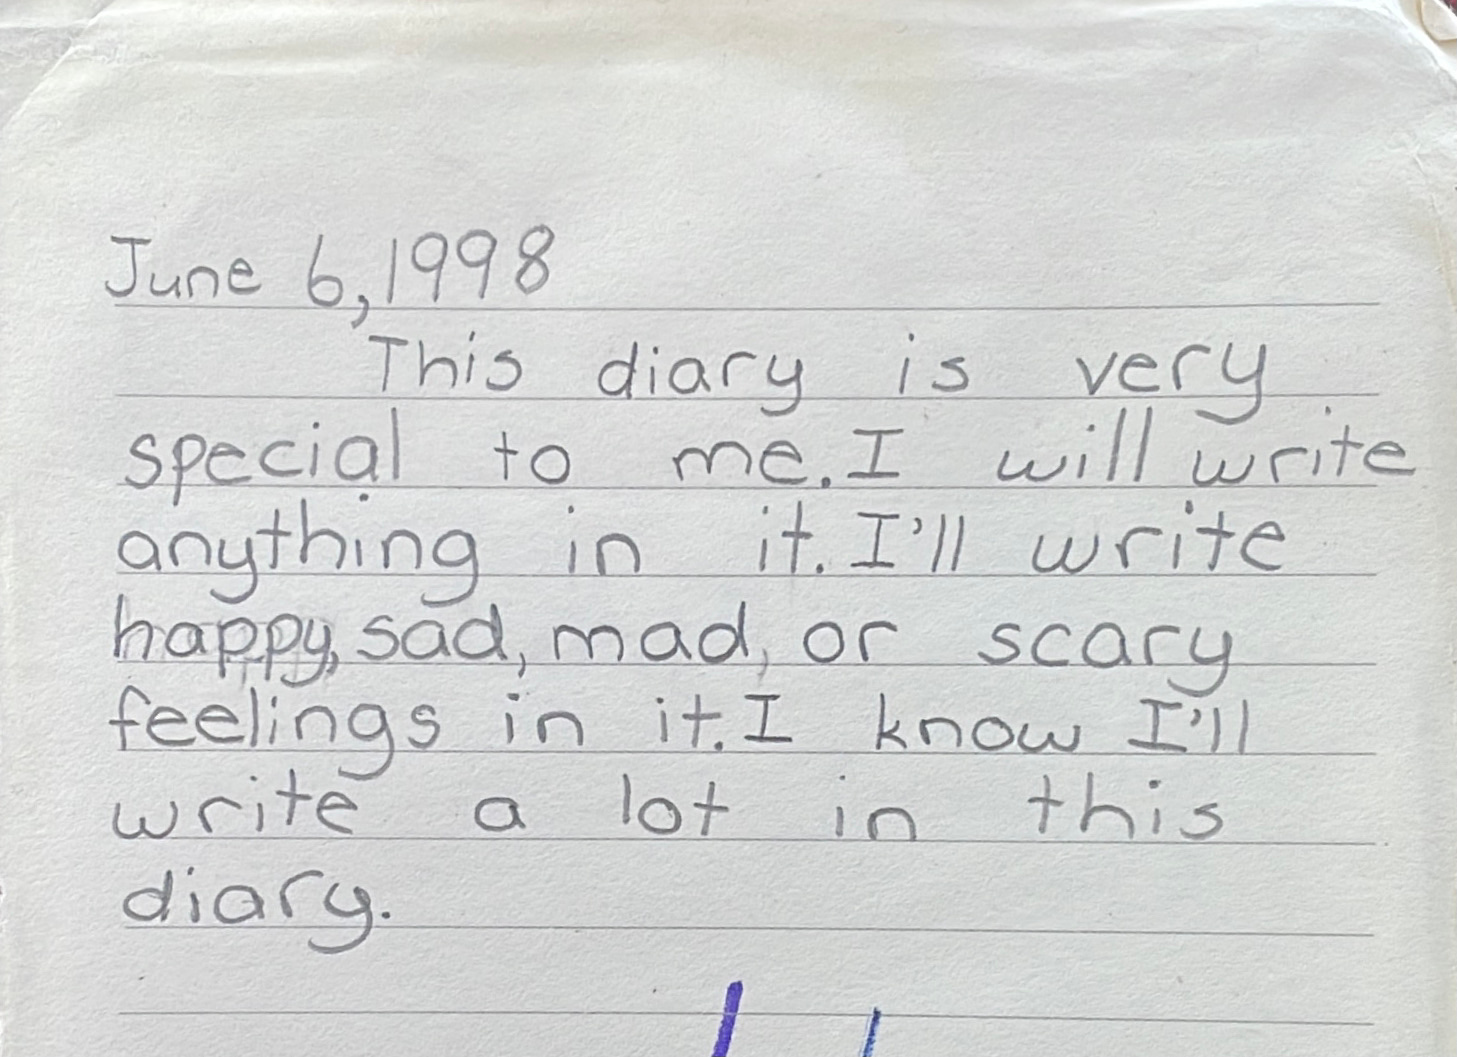 June 6, 1998
This diary is very
special to me. I will write
anything in it. I'll write
happy, sad, mad, or scary
feelings in it. I know I'll
write a lot in this
diary.